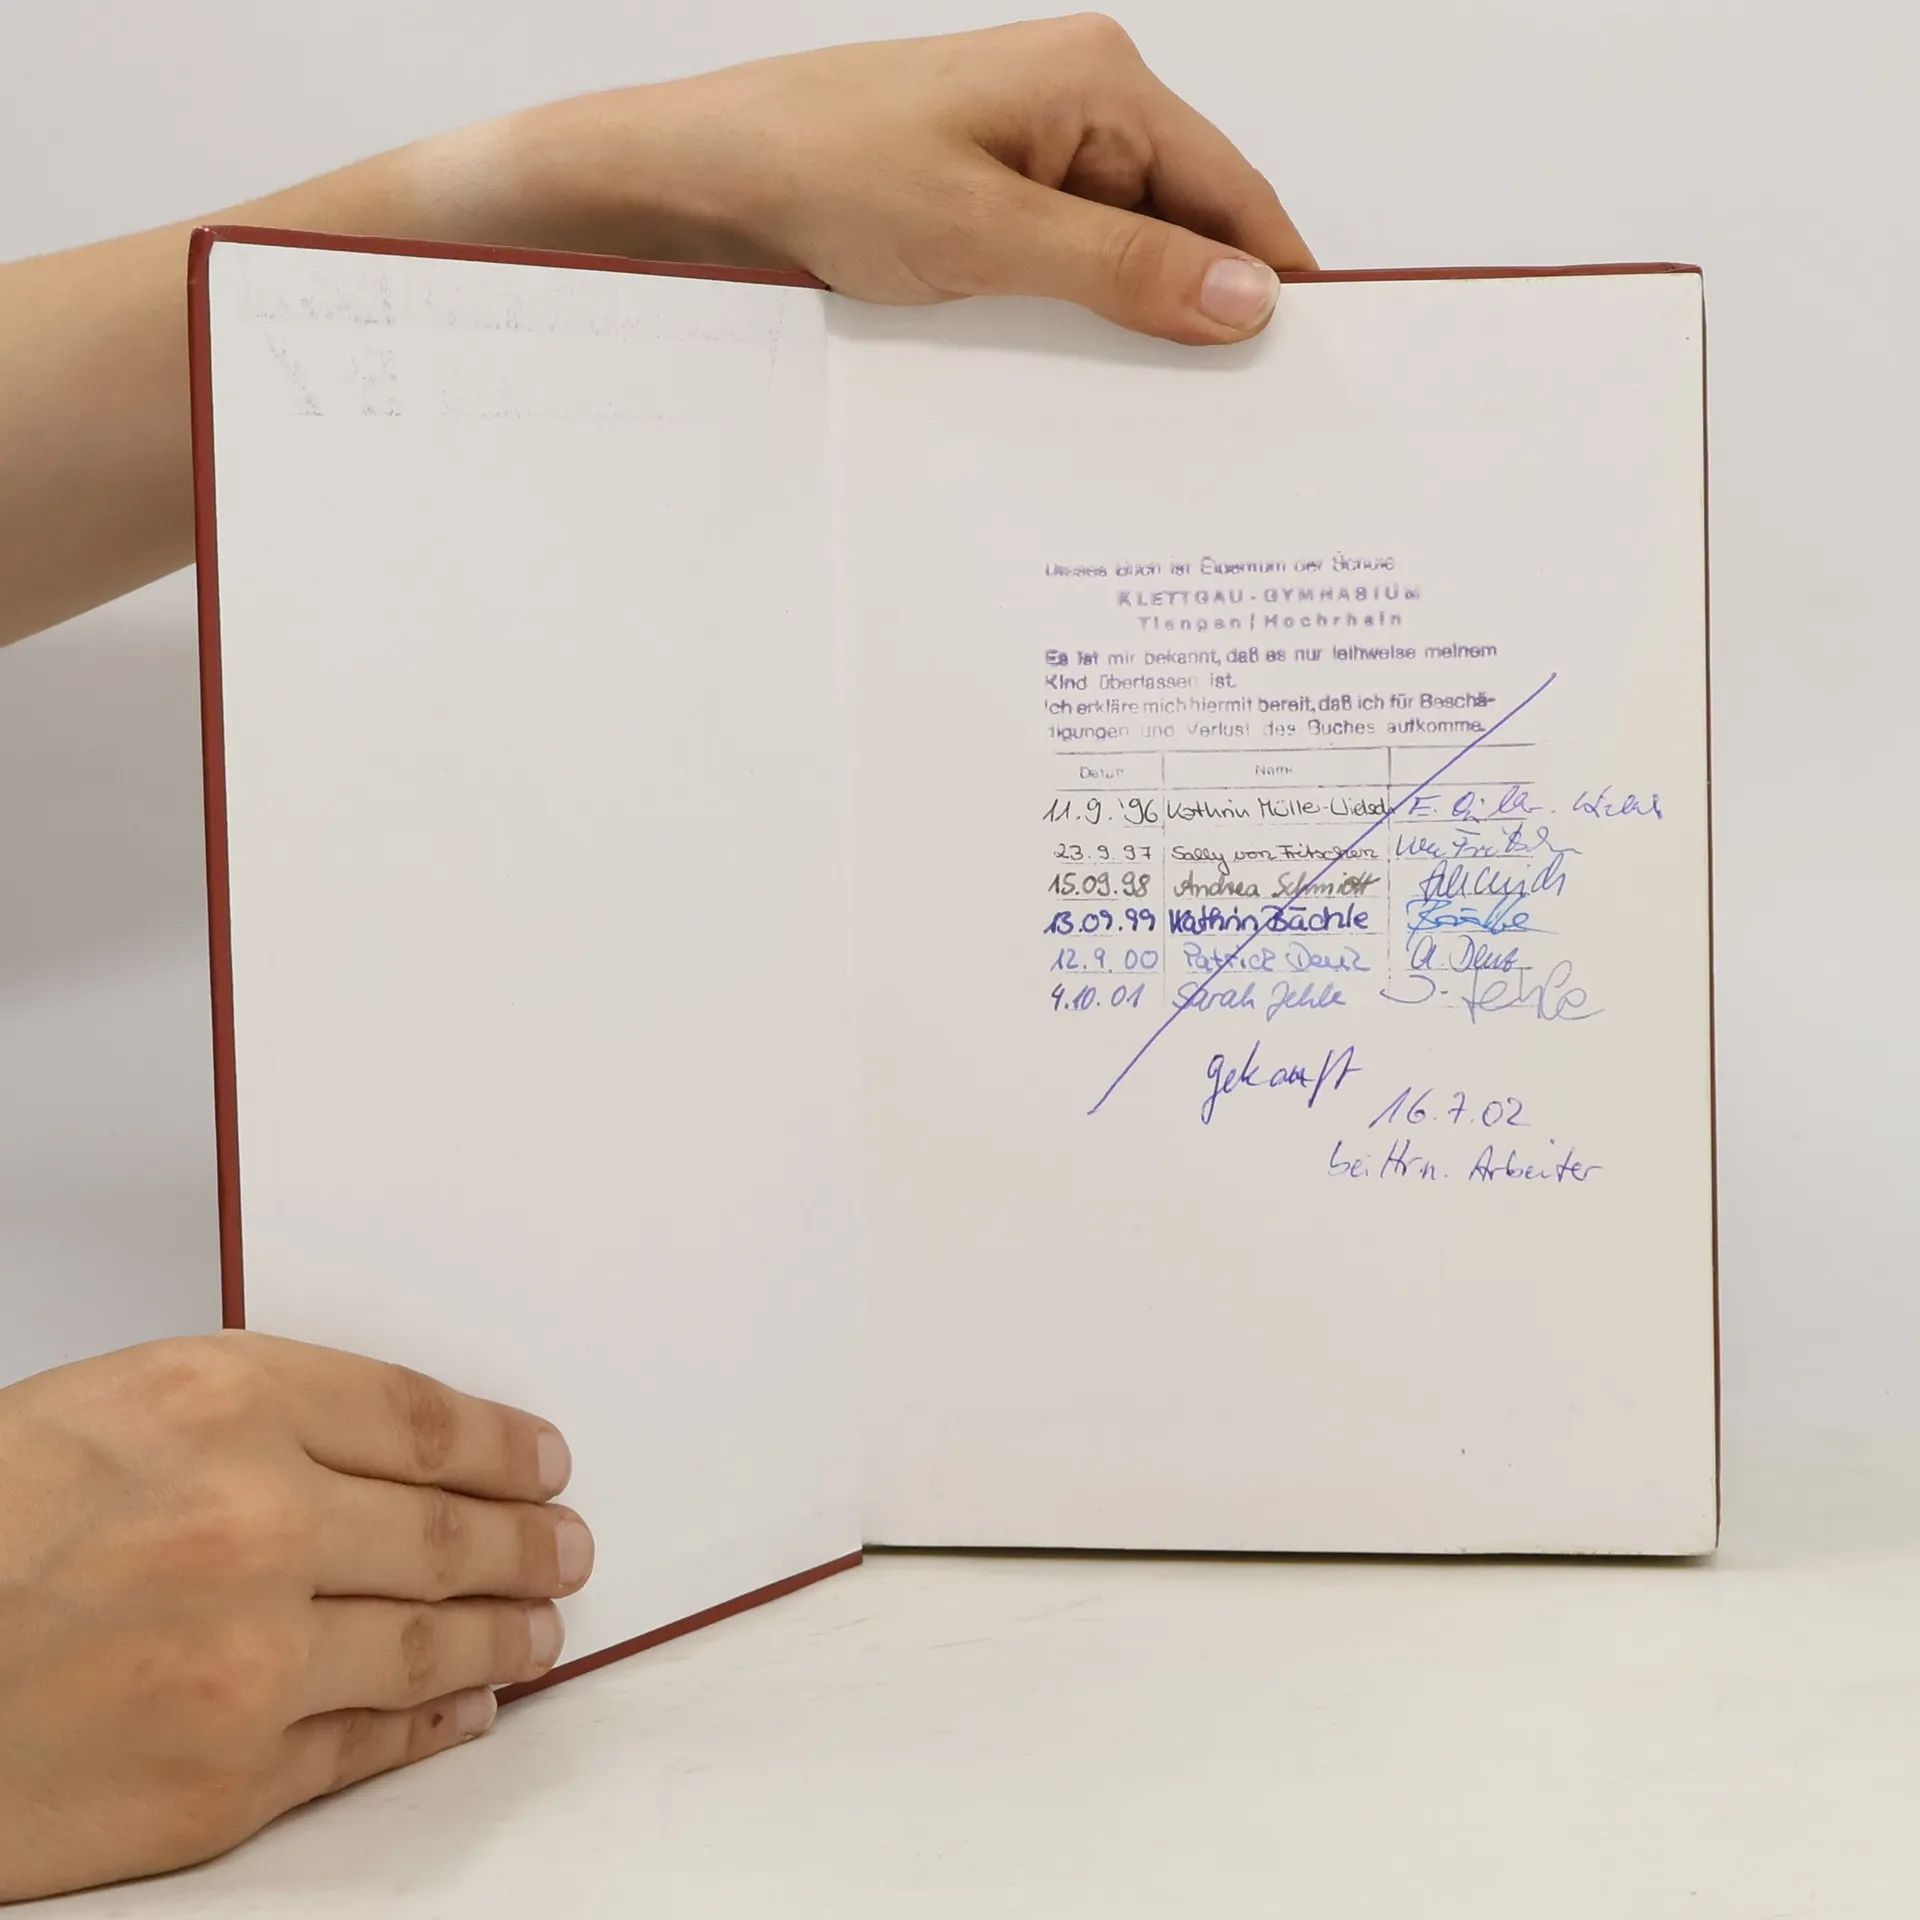 Dieses Buch ist Eigentum der Schule
KLETTGAU-GYMNASIUM
Tiengen/Hochrhein
Es ist mir bekannt, daß es nur leihweise meinem
Kind überlassen ist.
Ich erkläre mich hiermit bereit, daß ich für Beschä-
digungen und Verlust des Buches aufkomme.
Datum Name
11.9.'96 Kathrin Müller-
23.9.97 Sally von Fritschen
15.09.98 Andrea Schmidt
13.09.99 Kathrin Bächle Bächle
12.9.00 Patrick Denz A. Denz
4.10.01 Sarah Jehle J. Jehle
gekauft
16.7.02
bei Hrn. Arbeiter